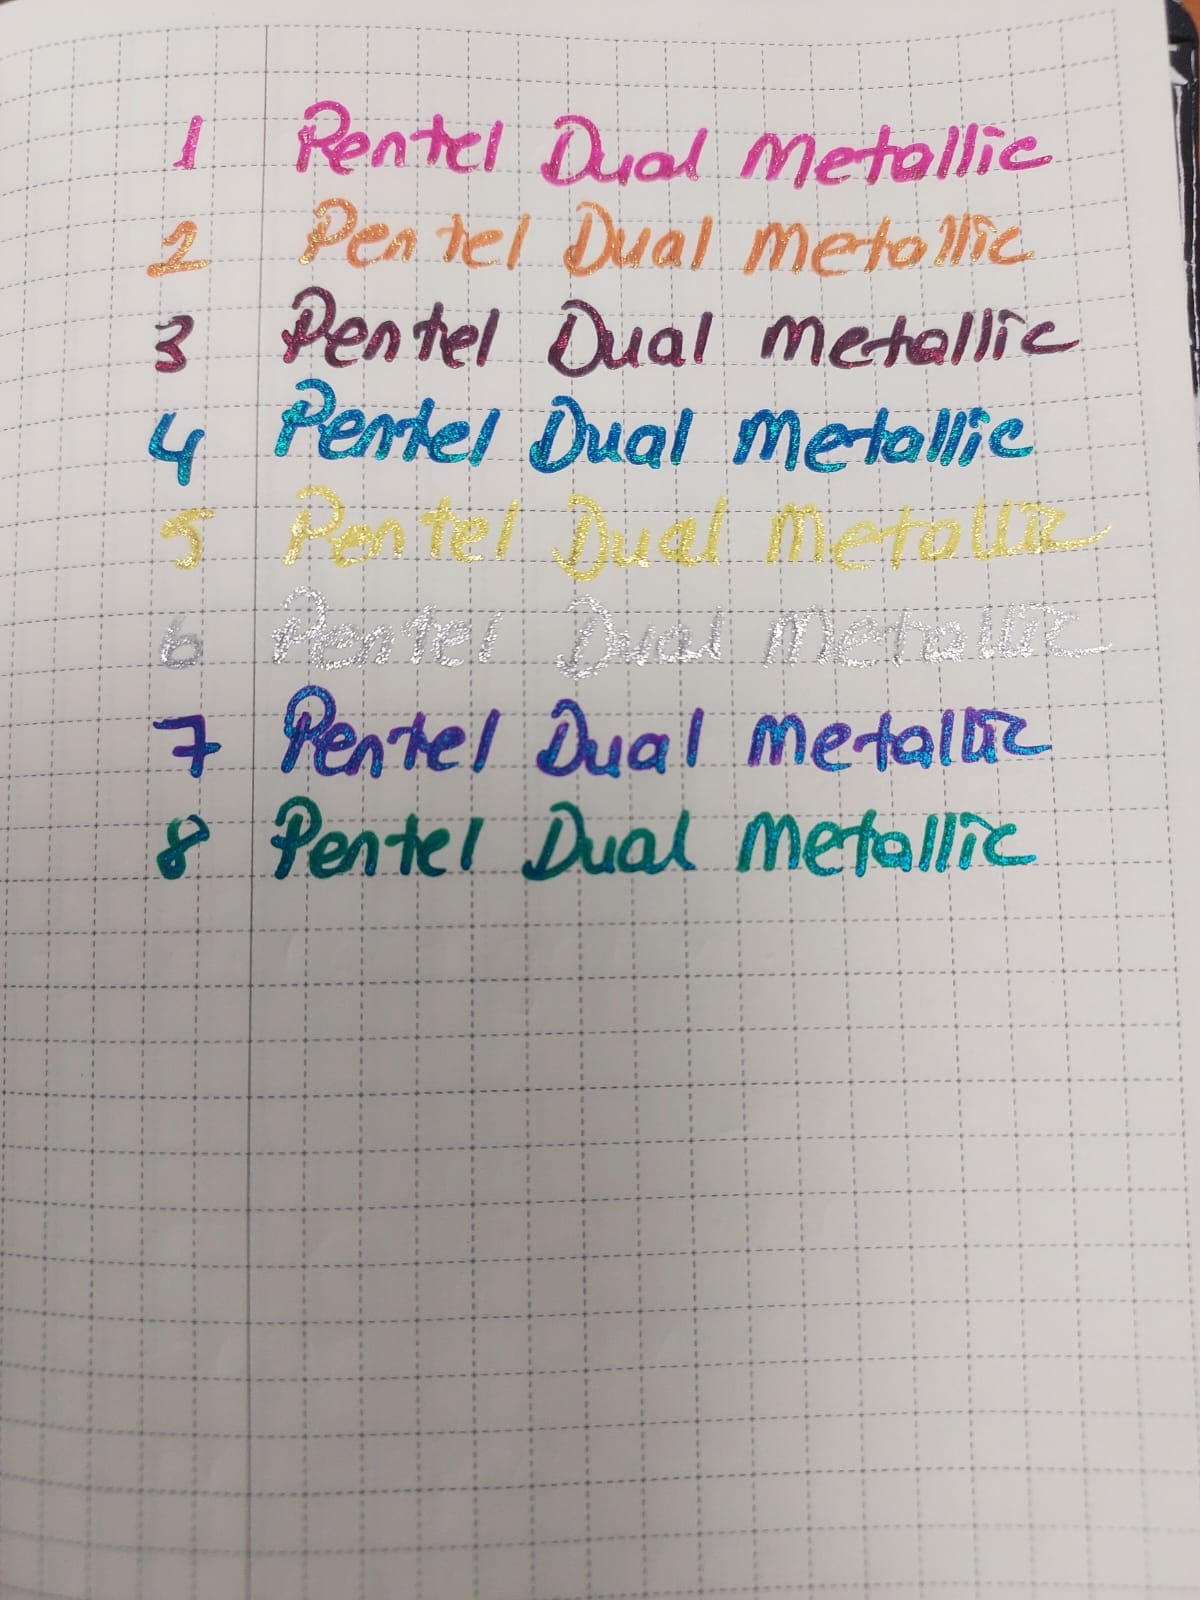 1 Pentel Dual Metallic
2 Pentel Dual Metallic
3 Pentel Dual Metallic
4 Pentel Dual Metallic
5 Pentel Dual Metallic
6 Pentel Dual Metallic
7 Pentel Dual Metallic
8 Pentel Dual Metallic